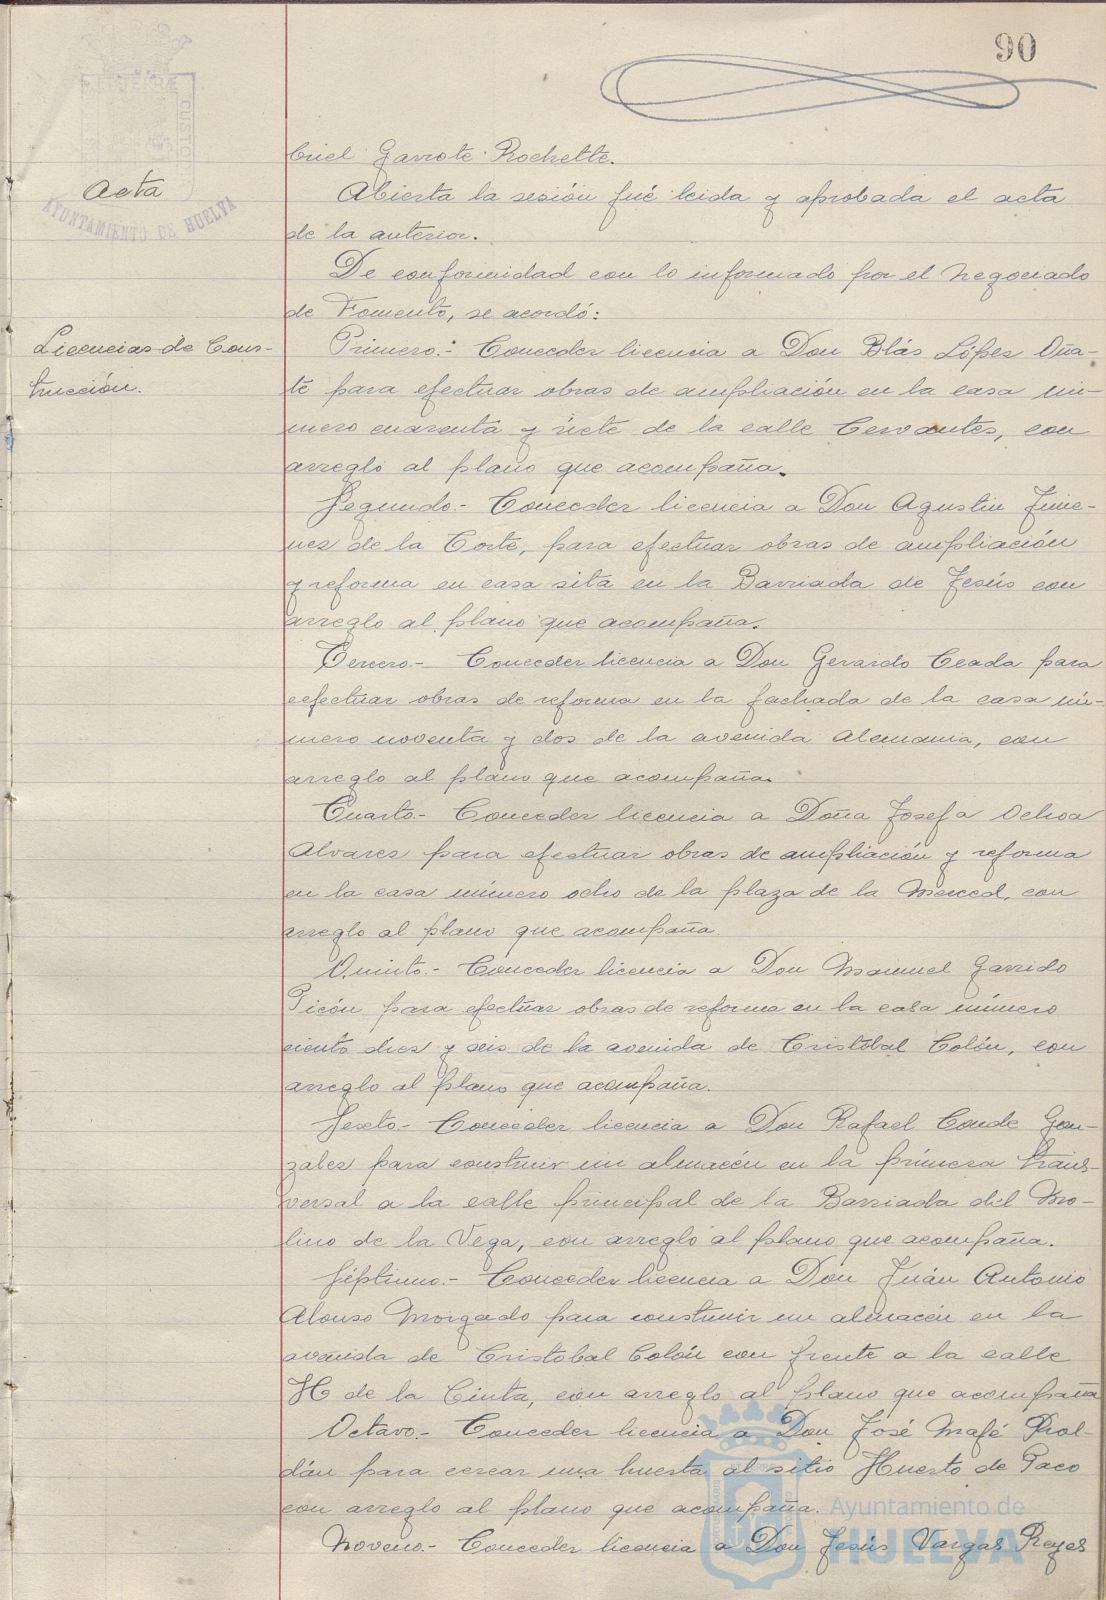 90
briel Garrote Rochette.
Acta
AYUNTAMIENTO DE HUELVA
Abierta la sesión fué leida y aprobada el acta
de la anterior.
De conformidad con lo informado por el Negociado
de Fomento, se acordó:
Licencias de Cons-
trucción.
Primero.- Conceder licencia a Don Blás López Oña-
te para efectuar obras de ampliación en la casa nú-
mero cuarenta y siete de la calle Cervantes, con
arreglo al plano que acompaña.
Segundo.- Conceder licencia a Don Agustin Jime-
nez de la Corte, para efectuar obras de ampliación
y reforma en casa sita en la Barriada de Jesús con
arreglo al plano que acompaña.
Tercero.- Conceder licencia a Don Gerardo Ceada para
eefectuar obras de reforma en la fachada de la casa nú-
mero noventa y dos de la avenida Alemania, con
arreglo al plano que acompaña.
Cuarto.- Conceder licencia a Doña Josefa Ochoa
Alvarez para efectuar obras de ampliación y reforma
en la casa número ocho de la plaza de la Merced, con
arreglo al plano que acompaña.
Quinto.- Conceder licencia a Don Manuel Garrido
Picón para efectuar obras de reforma en la casa número
ciento diez y seis de la avenida de Cristóbal Colón, con
arreglo al plano que acompaña.
Sexto.- Conceder licencia a Don Rafael Conde Gon-
zalez para construir un almacén en la primera trans-
versal a la calle principal de la Barriada del Mo-
lino de la Vega, con arreglo al plano que acompaña.
Séptimo.- Conceder licencia a Don Juán Antonio
Alonso Morgado para construir un almacén en la
avenida de Cristobal Colón con frente a la calle
H de la Cinta, con arreglo al plano que acompaña
Octavo.- Conceder licencia a Don José Mafé Rol-
dán para cercar una huerta al sitio Huerto de Paco
con arreglo al plano que acompaña.
Noveno.- Conceder licencia a Don Jesús Vargas Reyes
Ayuntamiento de
HUELVA